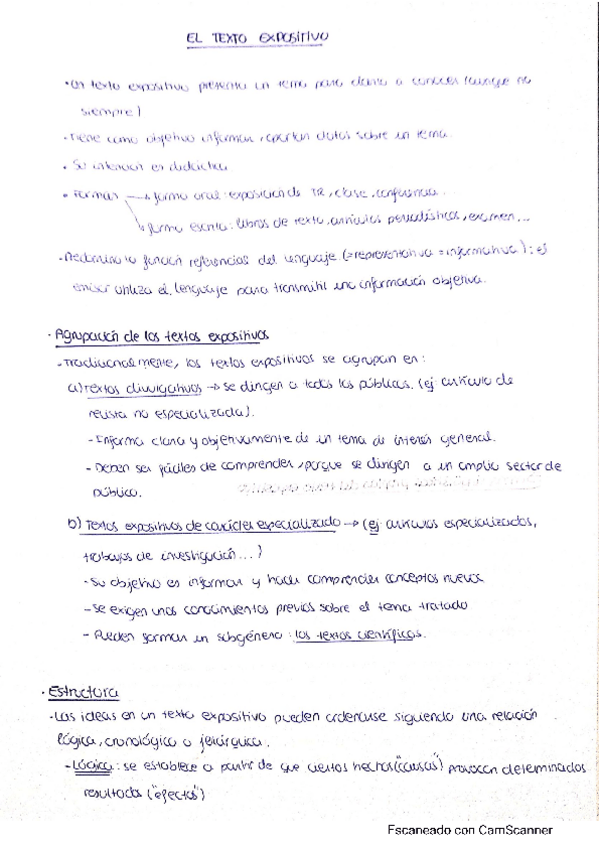 EL TEXTO EXPOSITIVO
• Un texto expositivo presenta un tema para darlo a conocer (aunque no
siempre)
- Tiene como objetivo informar, aportar datos sobre un tema.
• Su intención es didáctica
• Formas → forma oral: exposición de TR, clase, conferencia...
→ forma escrita: libros de texto, artículos periodísticos, examen...
- Predomina la función referencial del lenguaje (=representativa = informativa): el
emisor utiliza el lenguaje para transmitir una información objetiva.
• Agrupación de los textos expositivos
- Tradicionalmente, los textos expositivos se agrupan en:
a) Textos divulgativos → se dirigen a todos los públicos. (ej: artículo de
revista no especializada).
- Informa clara y objetivamente de un tema de interés general.
- Deben ser fáciles de comprender, porque se dirigen a un amplio sector de
público.
b) Textos expositivos de carácter especializado → (ej: artículos especializados,
trabajos de investigación...)
- Su objetivo es informar y hacer comprender conceptos nuevos
- Se exigen unos conocimientos previos sobre el tema tratado
- Pueden formar un subgénero: los textos científicos.
• Estructura
- Las ideas en un texto expositivo pueden ordenarse siguiendo una relación
lógica, cronológica o jerárquica.
- Lógica: se establece a partir de que ciertos hechos ("causas") provocan determinados
resultados ("efectos")
Escaneado con CamScanner